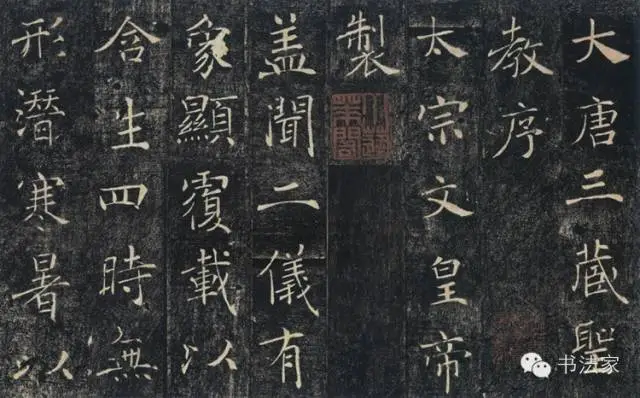 大唐三藏聖
教序
太宗文皇帝
製
盖聞二儀有
象顯覆載以
含生四時無
形潛寒暑以
书法家